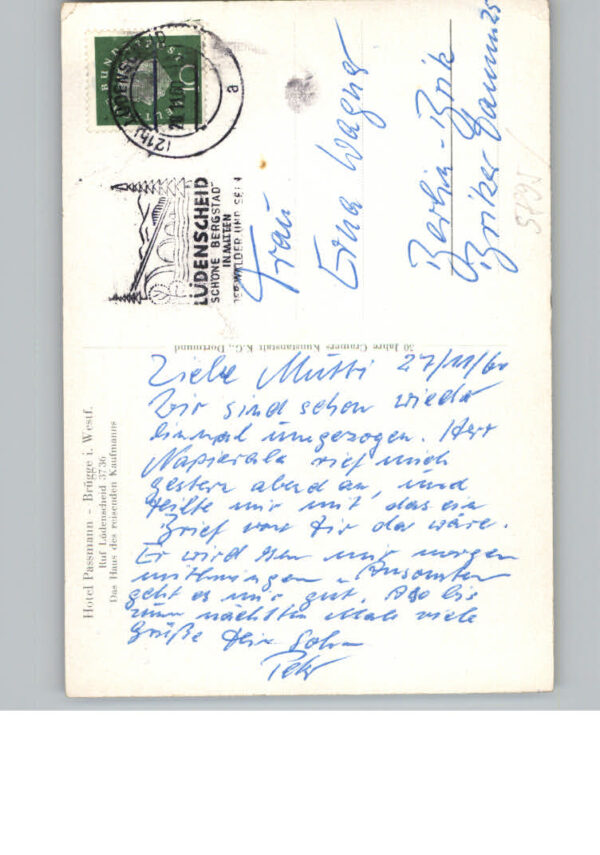 Hotel Passmann - Brügge i. Westf.
Ruf Lüdenscheid 3736
Das Haus des reisenden Kaufmanns
50 Jahre Cramers Kunstanstalt K.G., Dortmund
BUNDESPOST
10
LÜDENSCHEID
(21b)
a
LÜDENSCHEID
SCHÖNE BERGSTADT
INMITTEN
DER WÄLDER UND SEEN
Frau
Erna Wagner
Berlin-Brik
Briker Damm 25
Liebe Mutti 27/11/60
Wir sind schon wieder
einmal umgezogen. Herr
Napierala rief mich
gestern abend an, und
teilte mir mit das ein
Brief von Dir da wäre.
Er wird ihn mir morgen
mitbringen. Ansonsten
geht es mir gut. Also bis
zum nächsten Mal viele
Grüße Dein Sohn
Peter